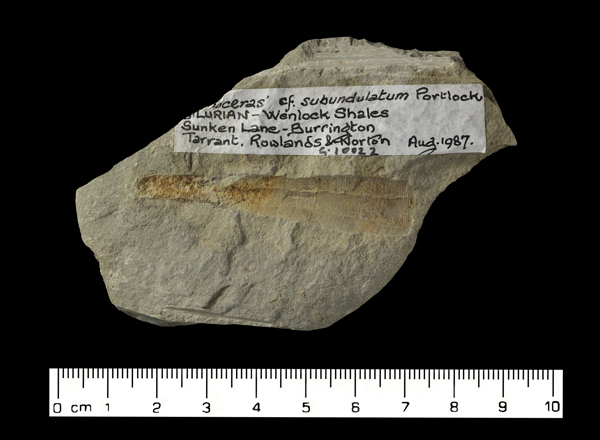 cf. subundulatum Portlock
SILURIAN - Wenlock Shales
Sunken Lane - Burrington
Tarrant, Rowlands & Norton Aug. 1987.
G.10022
0 cm 1 2 3 4 5 6 7 8 9 10